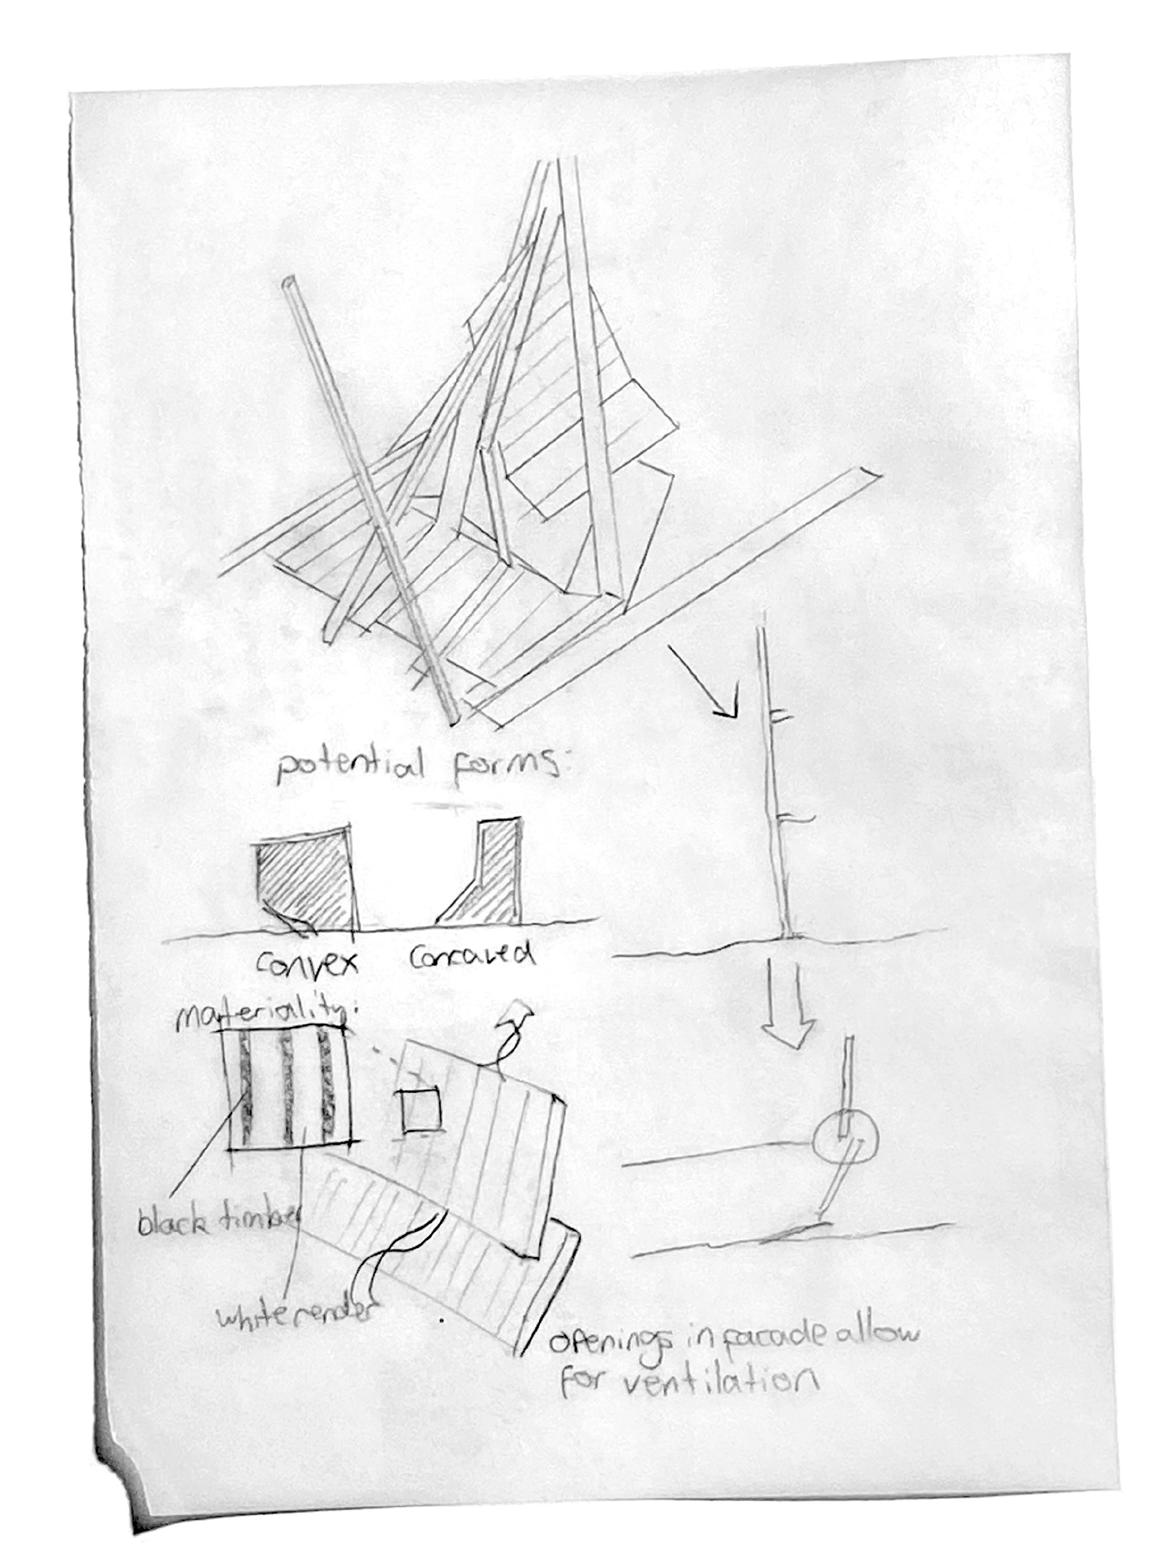 potential forms:
convex
concaved
materiality:
black timber
white render
openings in facade allow
for ventilation